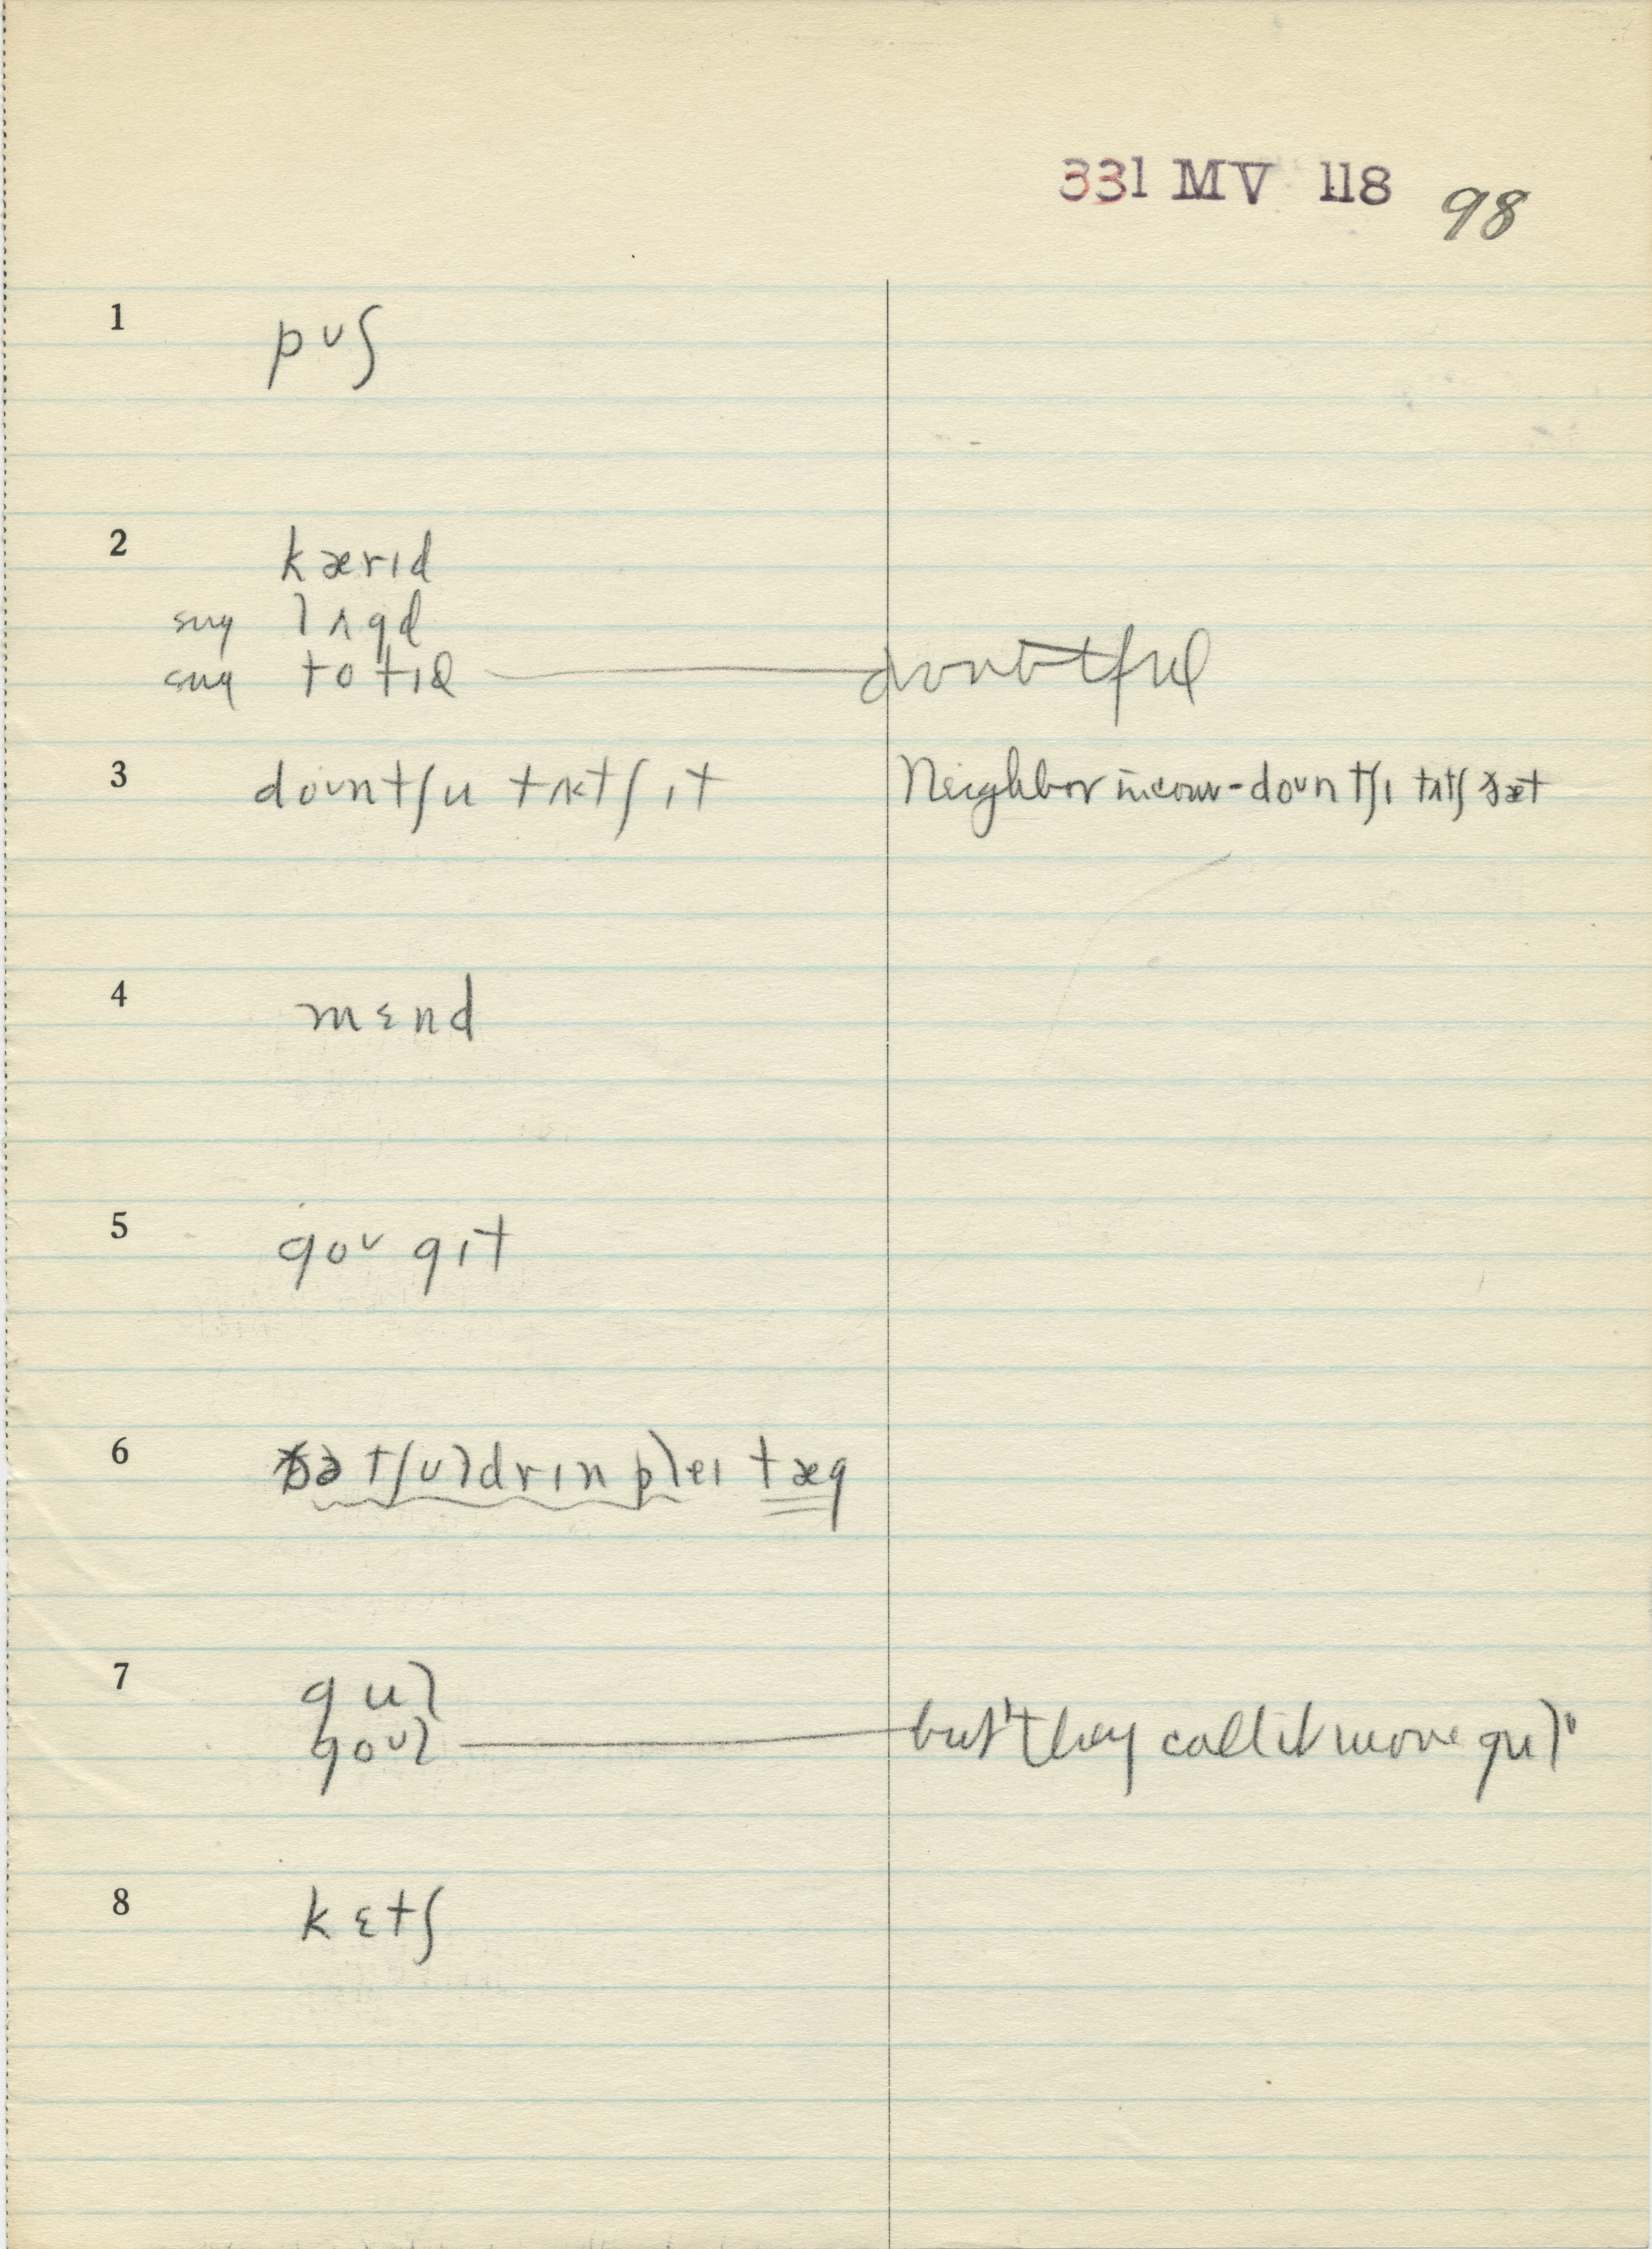 331 MV 118 98
1 pʊʃ
2 kærɪd
sug lʌgd
sug totɪd — doubtful
3 doʊntʃu tʌtʃ ɪt Neighbor in conv - doʊn tʃɪ tʌtʃ ðæt
4 mɛnd
5 goʊ gɪt
6 ðə tʃʊldrɪn pleɪ tæg
7 gul
goʊl — but "they call it more gul"
8 kɛtʃ